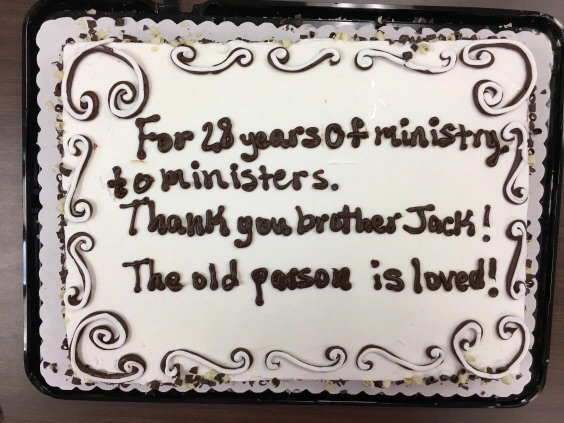 For 28 years Of ministry
to ministers.
Thank you brother Jack!
The old parson is loved!